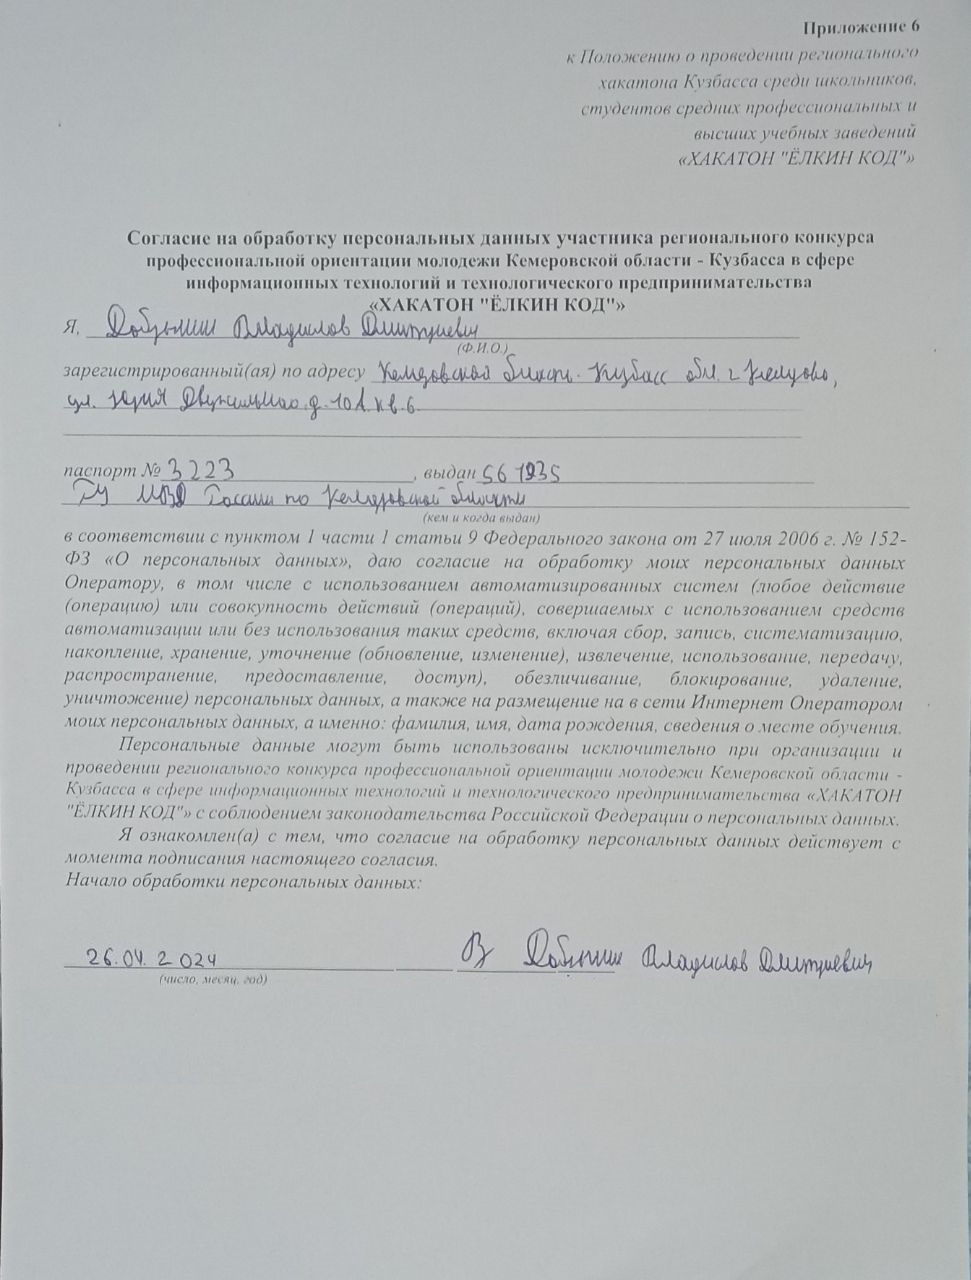 Приложение 6
к Положению о проведении регионального
хакатона Кузбасса среди школьников,
студентов средних профессиональных и
высших учебных заведений
«ХАКАТОН "ЁЛКИН КОД"»
Согласие на обработку персональных данных участника регионального конкурса
профессиональной ориентации молодежи Кемеровской области - Кузбасса в сфере
информационных технологий и технологического предпринимательства
«ХАКАТОН "ЁЛКИН КОД"»
Я, Добрынин Владислав Дмитриевич
(Ф.И.О.)
зарегистрированный(ая) по адресу Кемеровская Кузбасс обл. г Кемерово,
ул. д. 10А кв. 6
паспорт № 3223, выдан 561935
ГУ МВД России по Кемеровской области
(кем и когда выдан)
в соответствии с пунктом 1 части 1 статьи 9 Федерального закона от 27 июля 2006 г. № 152-
ФЗ «О персональных данных», даю согласие на обработку моих персональных данных
Оператору, в том числе с использованием автоматизированных систем (любое действие
(операцию) или совокупность действий (операций), совершаемых с использованием средств
автоматизации или без использования таких средств, включая сбор, запись, систематизацию,
накопление, хранение, уточнение (обновление, изменение), извлечение, использование, передачу,
распространение, предоставление, доступ), обезличивание, блокирование, удаление,
уничтожение) персональных данных, а также на размещение на в сети Интернет Оператором
моих персональных данных, а именно: фамилия, имя, дата рождения, сведения о месте обучения.
Персональные данные могут быть использованы исключительно при организации и
проведении регионального конкурса профессиональной ориентации молодежи Кемеровской области -
Кузбасса в сфере информационных технологий и технологического предпринимательства «ХАКАТОН
"ЁЛКИН КОД"» с соблюдением законодательства Российской Федерации о персональных данных.
Я ознакомлен(а) с тем, что согласие на обработку персональных данных действует с
момента подписания настоящего согласия.
Начало обработки персональных данных:
26.04.2024 Добрынин Владислав Дмитриевич
(число, месяц, год)